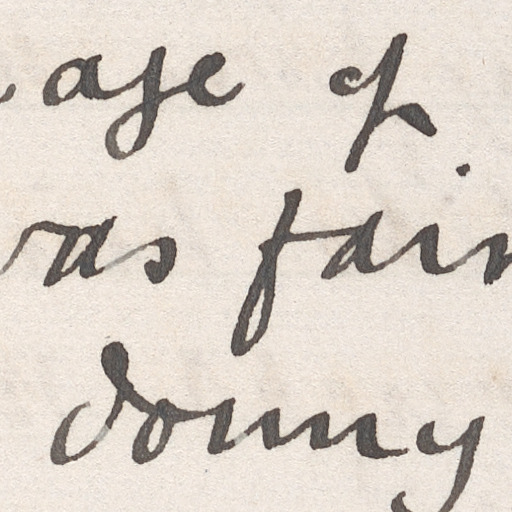 age of
was fair
donny